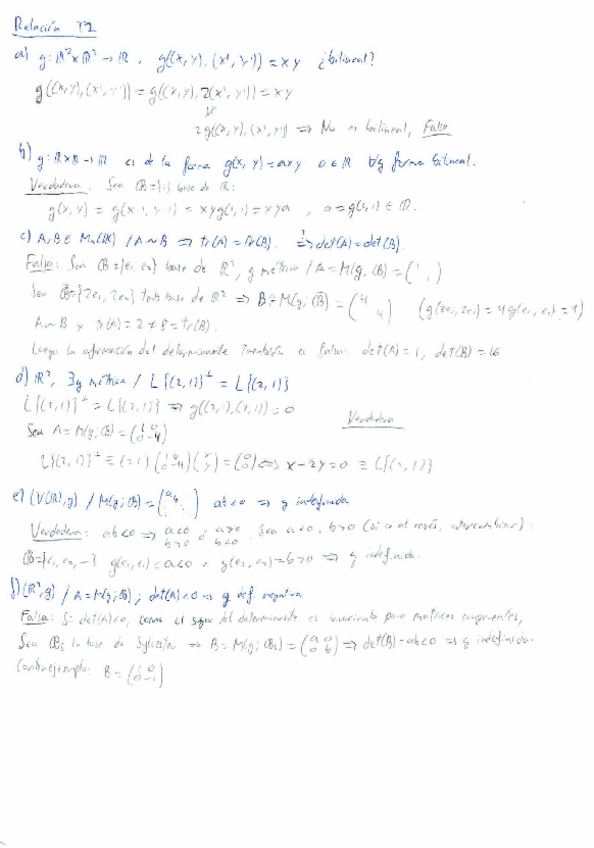 Relación T2
a) g: ℝ²×ℝ² → ℝ, g((x,y),(x',y')) = xy ¿bilineal?
g((x,y),(x',y')) = g((x,y), 2(x',y')) = xy
2g((x,y),(x',y')) ⇒ No es bilineal, Falso
b) g: ℝ×ℝ → ℝ es de la forma g(x,y) = axy a∈ℝ ∀g forma bilineal.
Verdadera. Sea B={1} base de ℝ:
g(x,y) = g(x·1, y·1) = xyg(1,1) = xya, a = g(1,1) ∈ ℝ.
c) A,B ∈ Mn(ℝ) / A~B ⇒ tr(A)=tr(B). ⇒ det(A)=det(B).
Falso: Sea B={e₁,e₂} base de ℝ², g métrica / A=M(g,B)=(1 1)
Sea B̄={2e₁,2e₂} base de ℝ² ⇒ B=M(g;B̄)=(4 4) (g(2e₁,2e₁)=4g(e₁,e₁)=4)
A~B y tr(A)=2≠8=tr(B).
Luego la afirmación del determinante también es falsa: det(A)=1, det(B)=16
d) ℝ², ∃g métrica / L{(2,1)}^⊥ = L{(2,1)}
L{(2,1)}^⊥ = L{(2,1)} ⇒ g((2,1),(2,1))=0
Verdadera
Sea A=M(g;B)=(1 0 0 -4)
L{(2,1)}^⊥ ≡ (2 1)(1 0 0 -4)(x y)=(0 0) ⇔ x-2y=0 ≡ L{(2,1)}
e) (V(ℝ),g) / M(g;B)=(a b ⋱) ab<0 ⇒ g indefinida
Verdadera: ab<0 ⇒ a<0 b>0 ó a>0 b<0. Sea a<0, b>0 (si es al revés, intercambiar):
B={e₁,e₂,...} g(e₁,e₁)=a<0 y g(e₂,e₂)=b>0 ⇒ g indefinida.
f) (ℝ²,g) / A=M(g;B); det(A)<0 ⇒ g def. negativa
Falsa: Si det(A)<0, como el signo del determinante es invariante para matrices congruentes,
Sea Bs la base de Sylvester ⇒ B=M(g;Bs)=(a 0 0 b) ⇒ det(B)=ab<0 ⇒ g indefinida.
Contraejemplo: B=(1 0 0 -1)